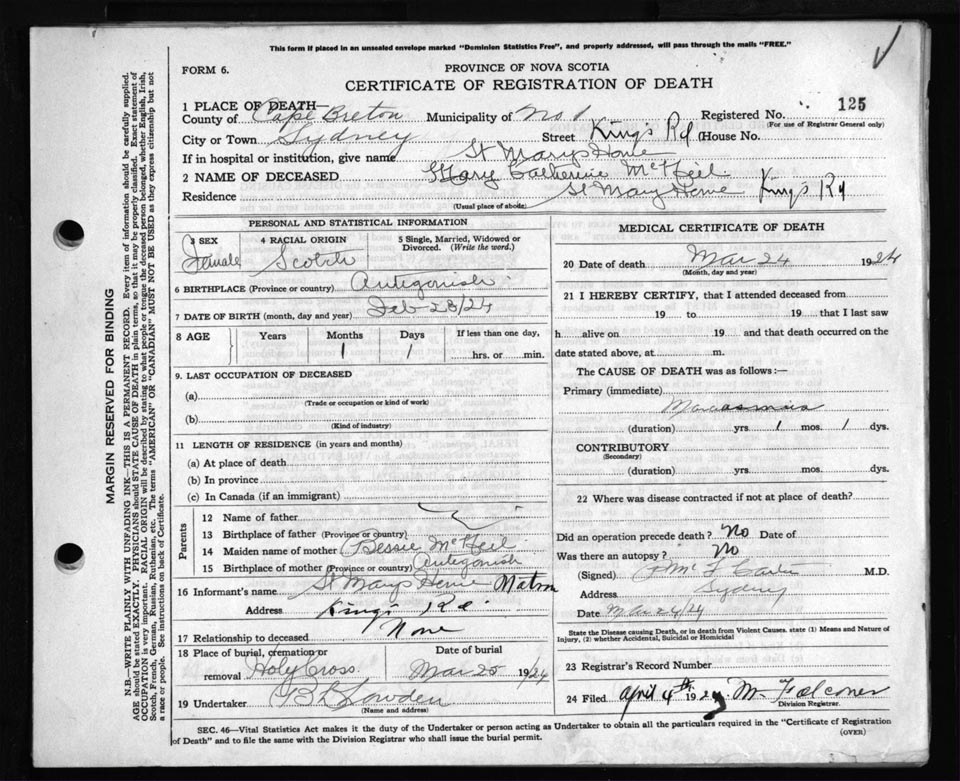 This form if placed in an unsealed envelope marked "Dominion Statistics Free", and properly addressed, will pass through the mails "FREE."
FORM 6.
PROVINCE OF NOVA SCOTIA
CERTIFICATE OF REGISTRATION OF DEATH
1 PLACE OF DEATH—
County of Cape Breton Municipality of No 1 Registered No. 125
(For use of Registrar General only)
City or Town Sydney Street King's Rd House No.
If in hospital or institution, give name St Marys Home
2 NAME OF DECEASED Mary Catherine McNeil
Residence St Mary Home King's Rd
(Usual place of abode)
PERSONAL AND STATISTICAL INFORMATION
3 SEX 4 RACIAL ORIGIN 5 Single, Married, Widowed or Divorced. (Write the word.)
Female Scotch
6 BIRTHPLACE (Province or country) Antigonish
7 DATE OF BIRTH (month, day and year) Feb 23/24
8 AGE Years Months Days If less than one day,
1 1 hrs. or min.
9. LAST OCCUPATION OF DECEASED
(a)
(Trade or occupation or kind of work)
(b)
(Kind of industry)
11 LENGTH OF RESIDENCE (in years and months)
(a) At place of death
(b) In province
(c) In Canada (if an immigrant)
Parents
12 Name of father
13 Birthplace of father (Province or country)
14 Maiden name of mother Bessie McNeil
15 Birthplace of mother (Province or country) Antigonish
16 Informant's name St Marys Home Matron
Address King's Rd
17 Relationship to deceased None
18 Place of burial, cremation or removal Holy Cross
Date of burial Mar 25 1924
19 Undertaker
(Name and address)
MEDICAL CERTIFICATE OF DEATH
20 Date of death Mar 24 1924
(Month, day and year)
21 I HEREBY CERTIFY, that I attended deceased from
19 to 19 that I last saw
h alive on 19 and that death occurred on the
date stated above, at m.
The CAUSE OF DEATH was as follows:—
Primary (immediate)
Marasmus
(duration) yrs. 1 mos. 1 dys.
CONTRIBUTORY
(Secondary)
(duration) yrs. mos. dys.
22 Where was disease contracted if not at place of death?
Did an operation precede death? No Date of
Was there an autopsy? No
(Signed) M.D.
Address Sydney
Date Mar 24/24
State the Disease causing Death, or in death from Violent Causes, state (1) Means and Nature of
Injury, (2) whether Accidental, Suicidal or Homicidal
23 Registrar's Record Number
24 Filed April 4th 1924 M. Falconer
Division Registrar.
SEC. 46—Vital Statistics Act makes it the duty of the Undertaker or person acting as Undertaker to obtain all the particulars required in the "Certificate of Registration
of Death" and to file the same with the Division Registrar who shall issue the burial permit.
(OVER)
MARGIN RESERVED FOR BINDING
N.B.—WRITE PLAINLY WITH UNFADING INK—THIS IS A PERMANENT RECORD. Every item of information should be carefully supplied.
AGE should be stated EXACTLY. PHYSICIANS should STATE CAUSE OF DEATH in plain terms, so that it may be properly classified. Exact statement of
OCCUPATION is very important. RACIAL ORIGIN will be described by stating to what people or tongue the deceased person belonged, whether English, Irish,
Scotch, French, German, Russian, Ruthenian, etc. The terms "AMERICAN" OR "CANADIAN" MUST NOT BE USED as they express citizenship but not
a race or people. See instructions on back of Certificate.